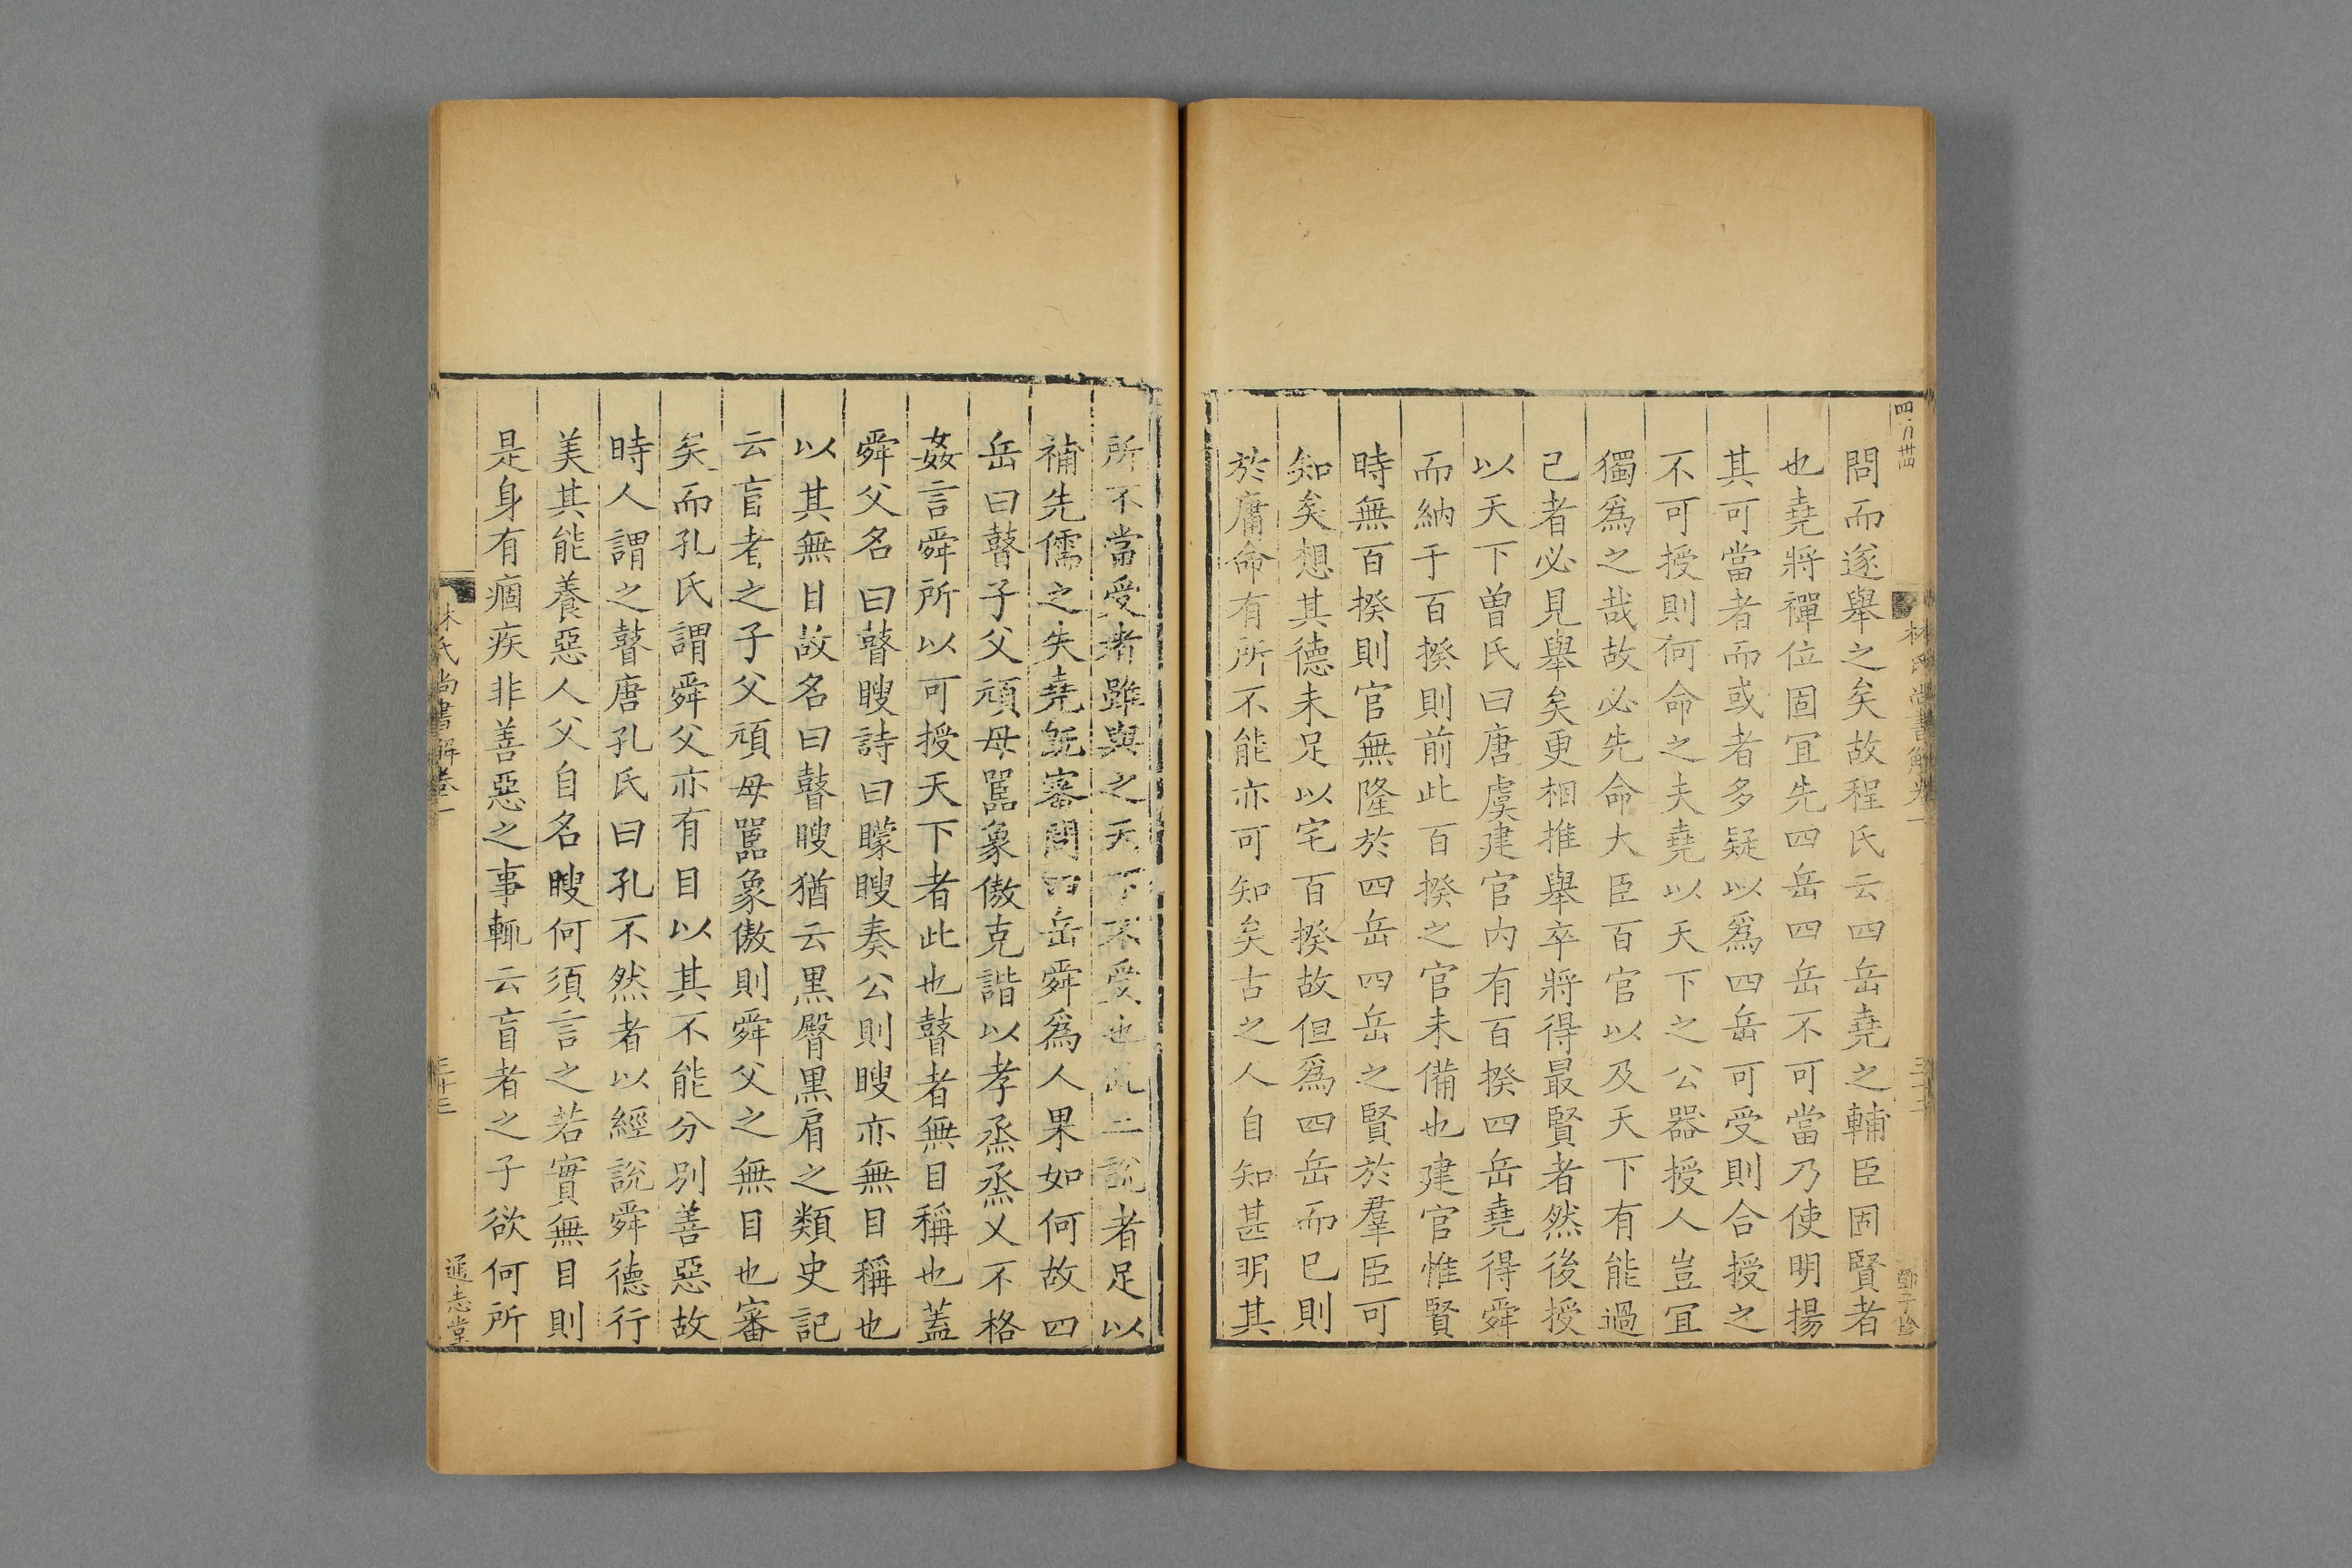 問而遂舉之矣故程氏云四岳堯之輔臣固賢者
也堯將禪位固冝先四岳四岳不可當乃使明揚
其可當者而或者多疑以爲四岳可受則合授之
不可授則何命之夫堯以天下之公器授人豈冝
獨爲之哉故必先命大臣百官以及天下有能過
己者必見舉矣更相推舉卒將得最賢者然後授
以天下曽氏曰唐虞建官内有百揆四岳堯得舜
而納于百揆則前此百揆之官未備也建官惟賢
時無百揆則官無隆於四岳四岳之賢於羣臣可
知矣想其德未足以宅百揆故但爲四岳而已則
於庸命有所不能亦可知矣古之人自知甚明其
林氏尚書解卷一
所不當受者雖與之天下不受也此二説者足以
補先儒之失堯旣審問四岳舜爲人果如何故四
岳曰瞽子父頑母嚚象傲克諧以孝烝烝乂不格
姦言舜所以可授天下者此也瞽者無目稱也蓋
舜父名曰瞽瞍詩曰矇瞍奏公則瞍亦無目稱也
以其無目故名曰瞽瞍猶云黑臀黑肩之類史記
云盲者之子父頑母嚚象傲則舜父之無目也審
矣而孔氏謂舜父亦有目以其不能分別善惡故
時人謂之瞽唐孔氏曰孔不然者以經說舜德行
美其能養惡人父自名瞍何須言之若實無目則
是身有痼疾非善惡之事輒云盲者之子欲何所
林氏尚書解卷一
三十三
通志堂